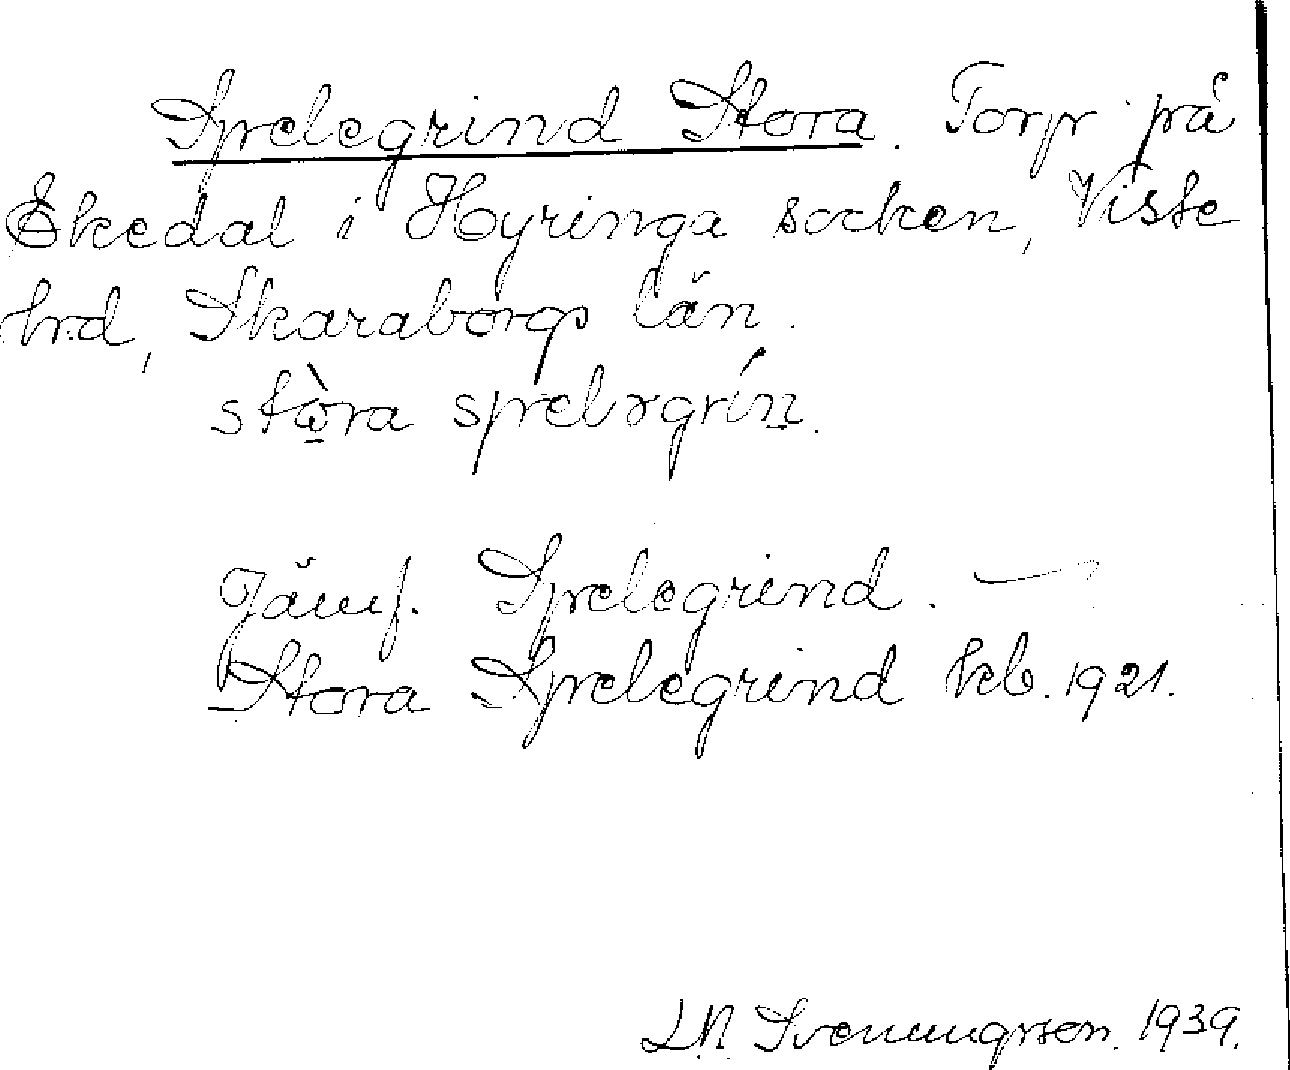 Spelegrind Stora. Torp på
Ekedal i Hyringa socken, Viste
hrd, Skaraborgs län.
stò̱ra spelǝgrín̲.
Jämf. Spelegrind. —
Stora Spelegrind kb. 1921.
L.N. Svenungsson. 1939.